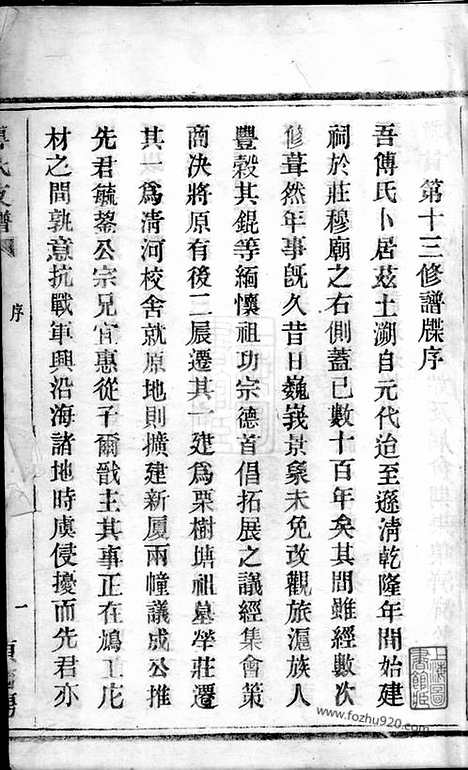 第十三修譜牒序
吾傅氏卜居茲土溯自元代迨至遜清乾隆年間始建
祠於莊穆廟之右側蓋已數十百年矣其間雖經數次
修葺然年事旣久昔日巍峩景象未免改觀旅滬族人
豐穀其錕等緬懷祖功宗德首倡拓展之議經集會策
商决將原有後二㞡遷其一建爲栗樹塘祖墓塋莊遷
其一爲淸河校舍就原地則擴建新厦兩幢議成公推
先君毓蓥公宗兄宜惠從子爾戩主其事正在鳩工庀
材之間孰意抗戰軍興沿海諸地時虞侵擾而先君亦
氏支譜
序
一
上海圖書館藏
www.fozhu920.com